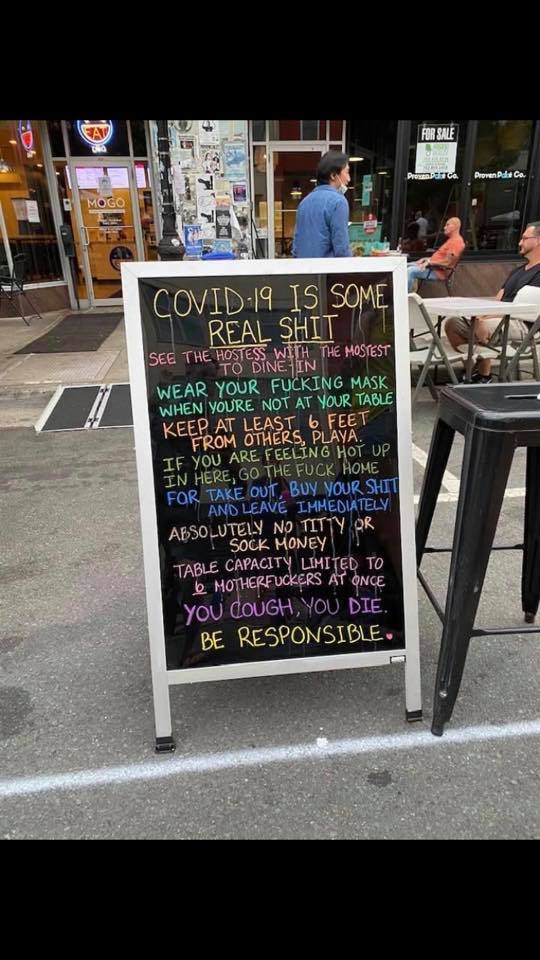 EAT
MOGO
FOR SALE
Proven Poké Co.
Proven Poké Co.
COVID-19 IS SOME
REAL SHIT
SEE THE HOSTESS WITH THE MOSTEST
TO DINE-IN
WEAR YOUR FUCKING MASK
WHEN YOURE NOT AT YOUR TABLE
KEEP AT LEAST 6 FEET
FROM OTHERS, PLAYA.
IF YOU ARE FEELING HOT UP
IN HERE, GO THE FUCK HOME
FOR TAKE OUT, BUY YOUR SHIT
AND LEAVE IMMEDIATELY
ABSOLUTELY NO TITTY OR
SOCK MONEY
TABLE CAPACITY LIMITED TO
6 MOTHERFUCKERS AT ONCE
YOU COUGH, YOU DIE.
BE RESPONSIBLE.